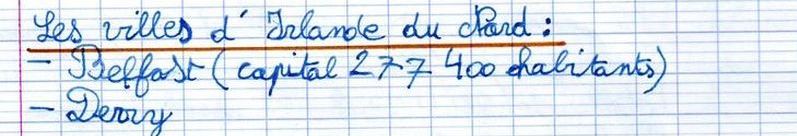 Les villes d'Irlande du Nord :
- Belfast (capital 277 400 habitants)
- Derry